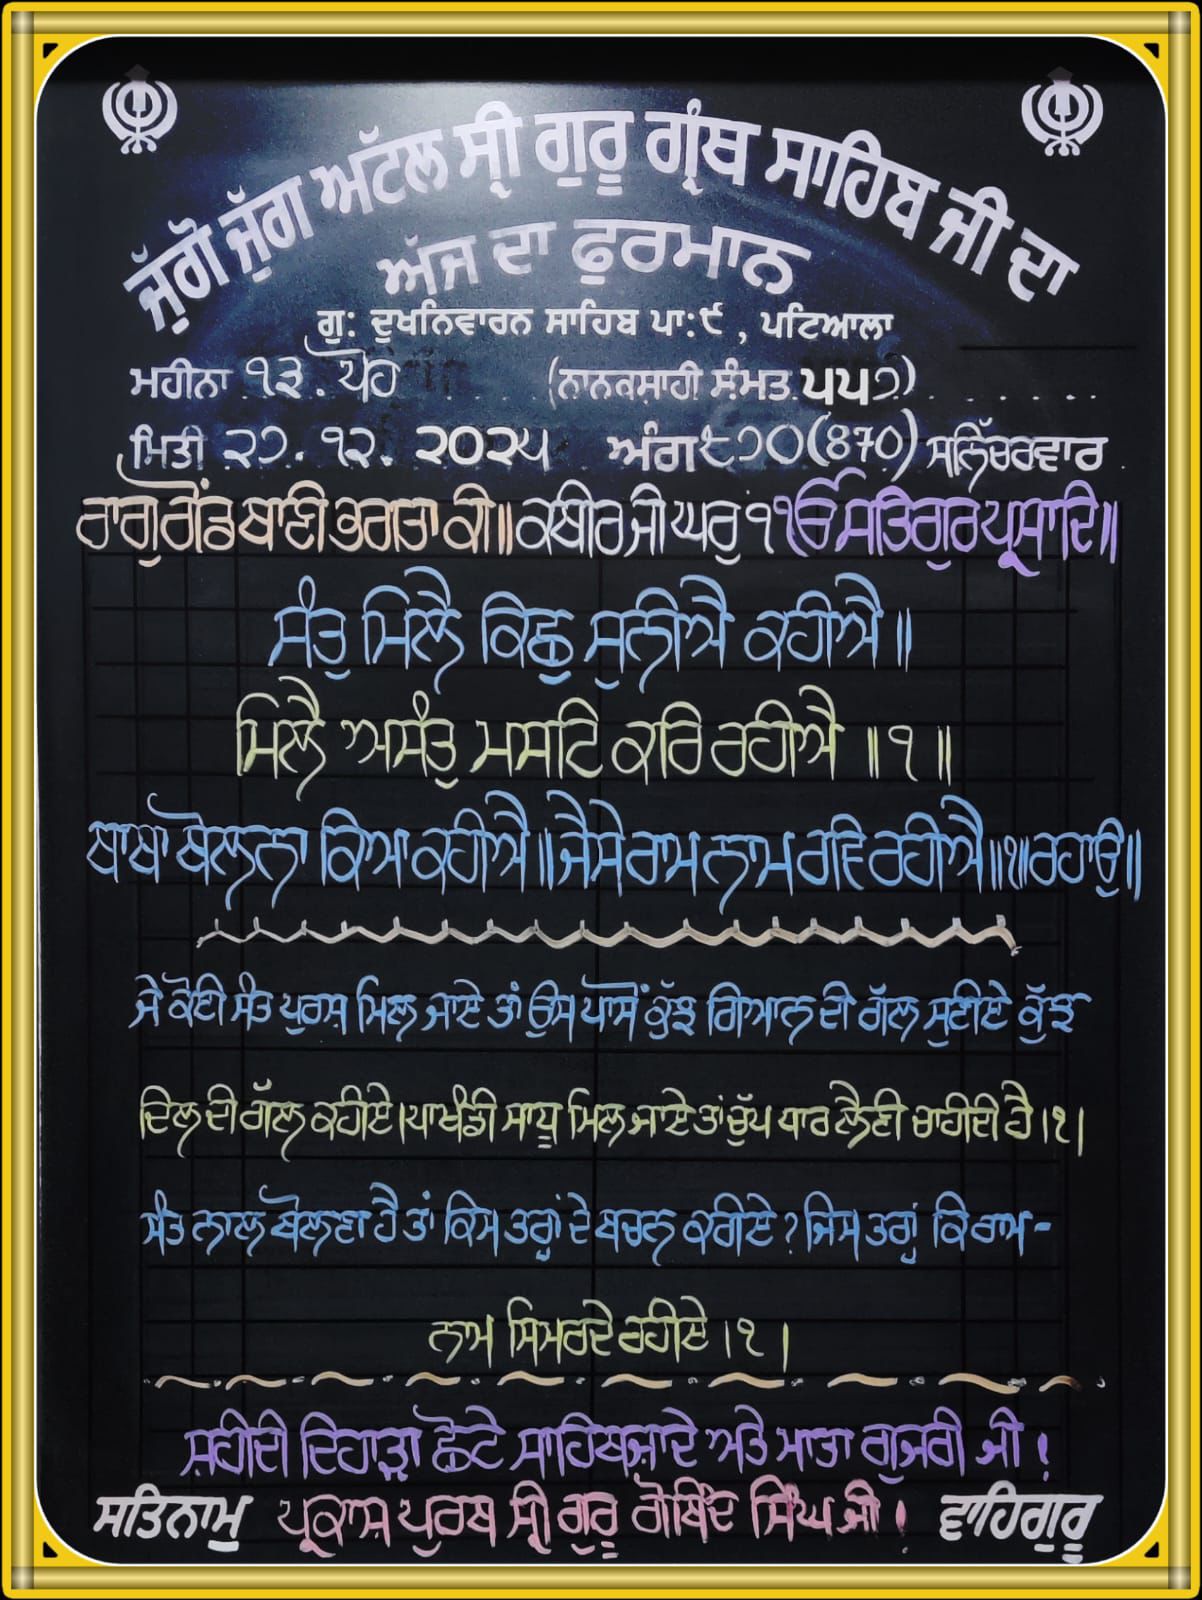 ਜੁੱਗੋ ਜੁੱਗ ਅਟੱਲ ਸ੍ਰੀ ਗੁਰੂ ਗ੍ਰੰਥ ਸਾਹਿਬ ਜੀ ਦਾ
ਅੱਜ ਦਾ ਫੁਰਮਾਨ
ਗੁ: ਦੁਖਨਿਵਾਰਨ ਸਾਹਿਬ ਪਾ:੯, ਪਟਿਆਲਾ
ਮਹੀਨਾ ੧੩. ਪੋਹ (ਨਾਨਕਸ਼ਾਹੀ ਸੰਮਤ ੫੫੭)
ਮਿਤੀ ੨੭. ੧੨. ੨੦੨੫ ਅੰਗ ੮੭੦(870) ਸਨਿੱਚਰਵਾਰ
ਰਾਗੁ ਗੋਂਡ ਬਾਣੀ ਭਗਤਾ ਕੀ॥ ਕਬੀਰ ਜੀ ਘਰੁ ੧ ੴ ਸਤਿਗੁਰ ਪ੍ਰਸਾਦਿ॥
ਸੰਤੁ ਮਿਲੈ ਕਿਛੁ ਸੁਨੀਐ ਕਹੀਐ॥
ਮਿਲੈ ਅਸੰਤੁ ਮਸਟਿ ਕਰਿ ਰਹੀਐ ॥੧॥
ਬਾਬਾ ਬੋਲਨਾ ਕਿਆ ਕਹੀਐ॥ ਜੈਸੇ ਰਾਮ ਨਾਮ ਰਵਿ ਰਹੀਐ॥੧॥ ਰਹਾਉ॥
ਜੇ ਕੋਈ ਸੰਤ ਪੁਰਸ਼ ਮਿਲ ਜਾਏ ਤਾਂ ਉਸ ਪਾਸੋਂ ਕੁੱਝ ਗਿਆਨ ਦੀ ਗੱਲ ਸੁਣੀਏ ਕੁੱਝ
ਦਿਲ ਦੀ ਗੱਲ ਕਹੀਏ। ਪਾਖੰਡੀ ਸਾਧੂ ਮਿਲ ਜਾਏ ਤਾਂ ਚੁੱਪ ਧਾਰ ਲੈਣੀ ਚਾਹੀਦੀ ਹੈ।੧।
ਸੰਤ ਨਾਲ ਬੋਲਣਾ ਹੈ ਤਾਂ ਕਿਸ ਤਰ੍ਹਾਂ ਦੇ ਬਚਨ ਕਰੀਏ? ਜਿਸ ਤਰ੍ਹਾਂ ਕਿ ਰਾਮ-
ਨਾਮ ਸਿਮਰਦੇ ਰਹੀਏ।੧।
ਸ਼ਹੀਦੀ ਦਿਹਾੜਾ ਛੋਟੇ ਸਾਹਿਬਜ਼ਾਦੇ ਅਤੇ ਮਾਤਾ ਗੁਜਰੀ ਜੀ!
ਸਤਿਨਾਮੁ ਪ੍ਰਕਾਸ਼ ਪੁਰਬ ਸ੍ਰੀ ਗੁਰੂ ਗੋਬਿੰਦ ਸਿੰਘ ਜੀ! ਵਾਹਿਗੁਰੂ